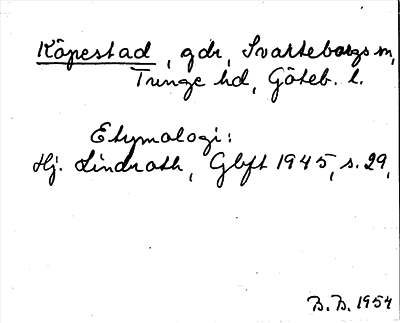 Köpestad, gdr, Svarteborgs sn,
Tunge hd, Göteb. l.
Etymologi:
Hj. Lindroth, Gbft 1945, s. 29,
B. B. 1954